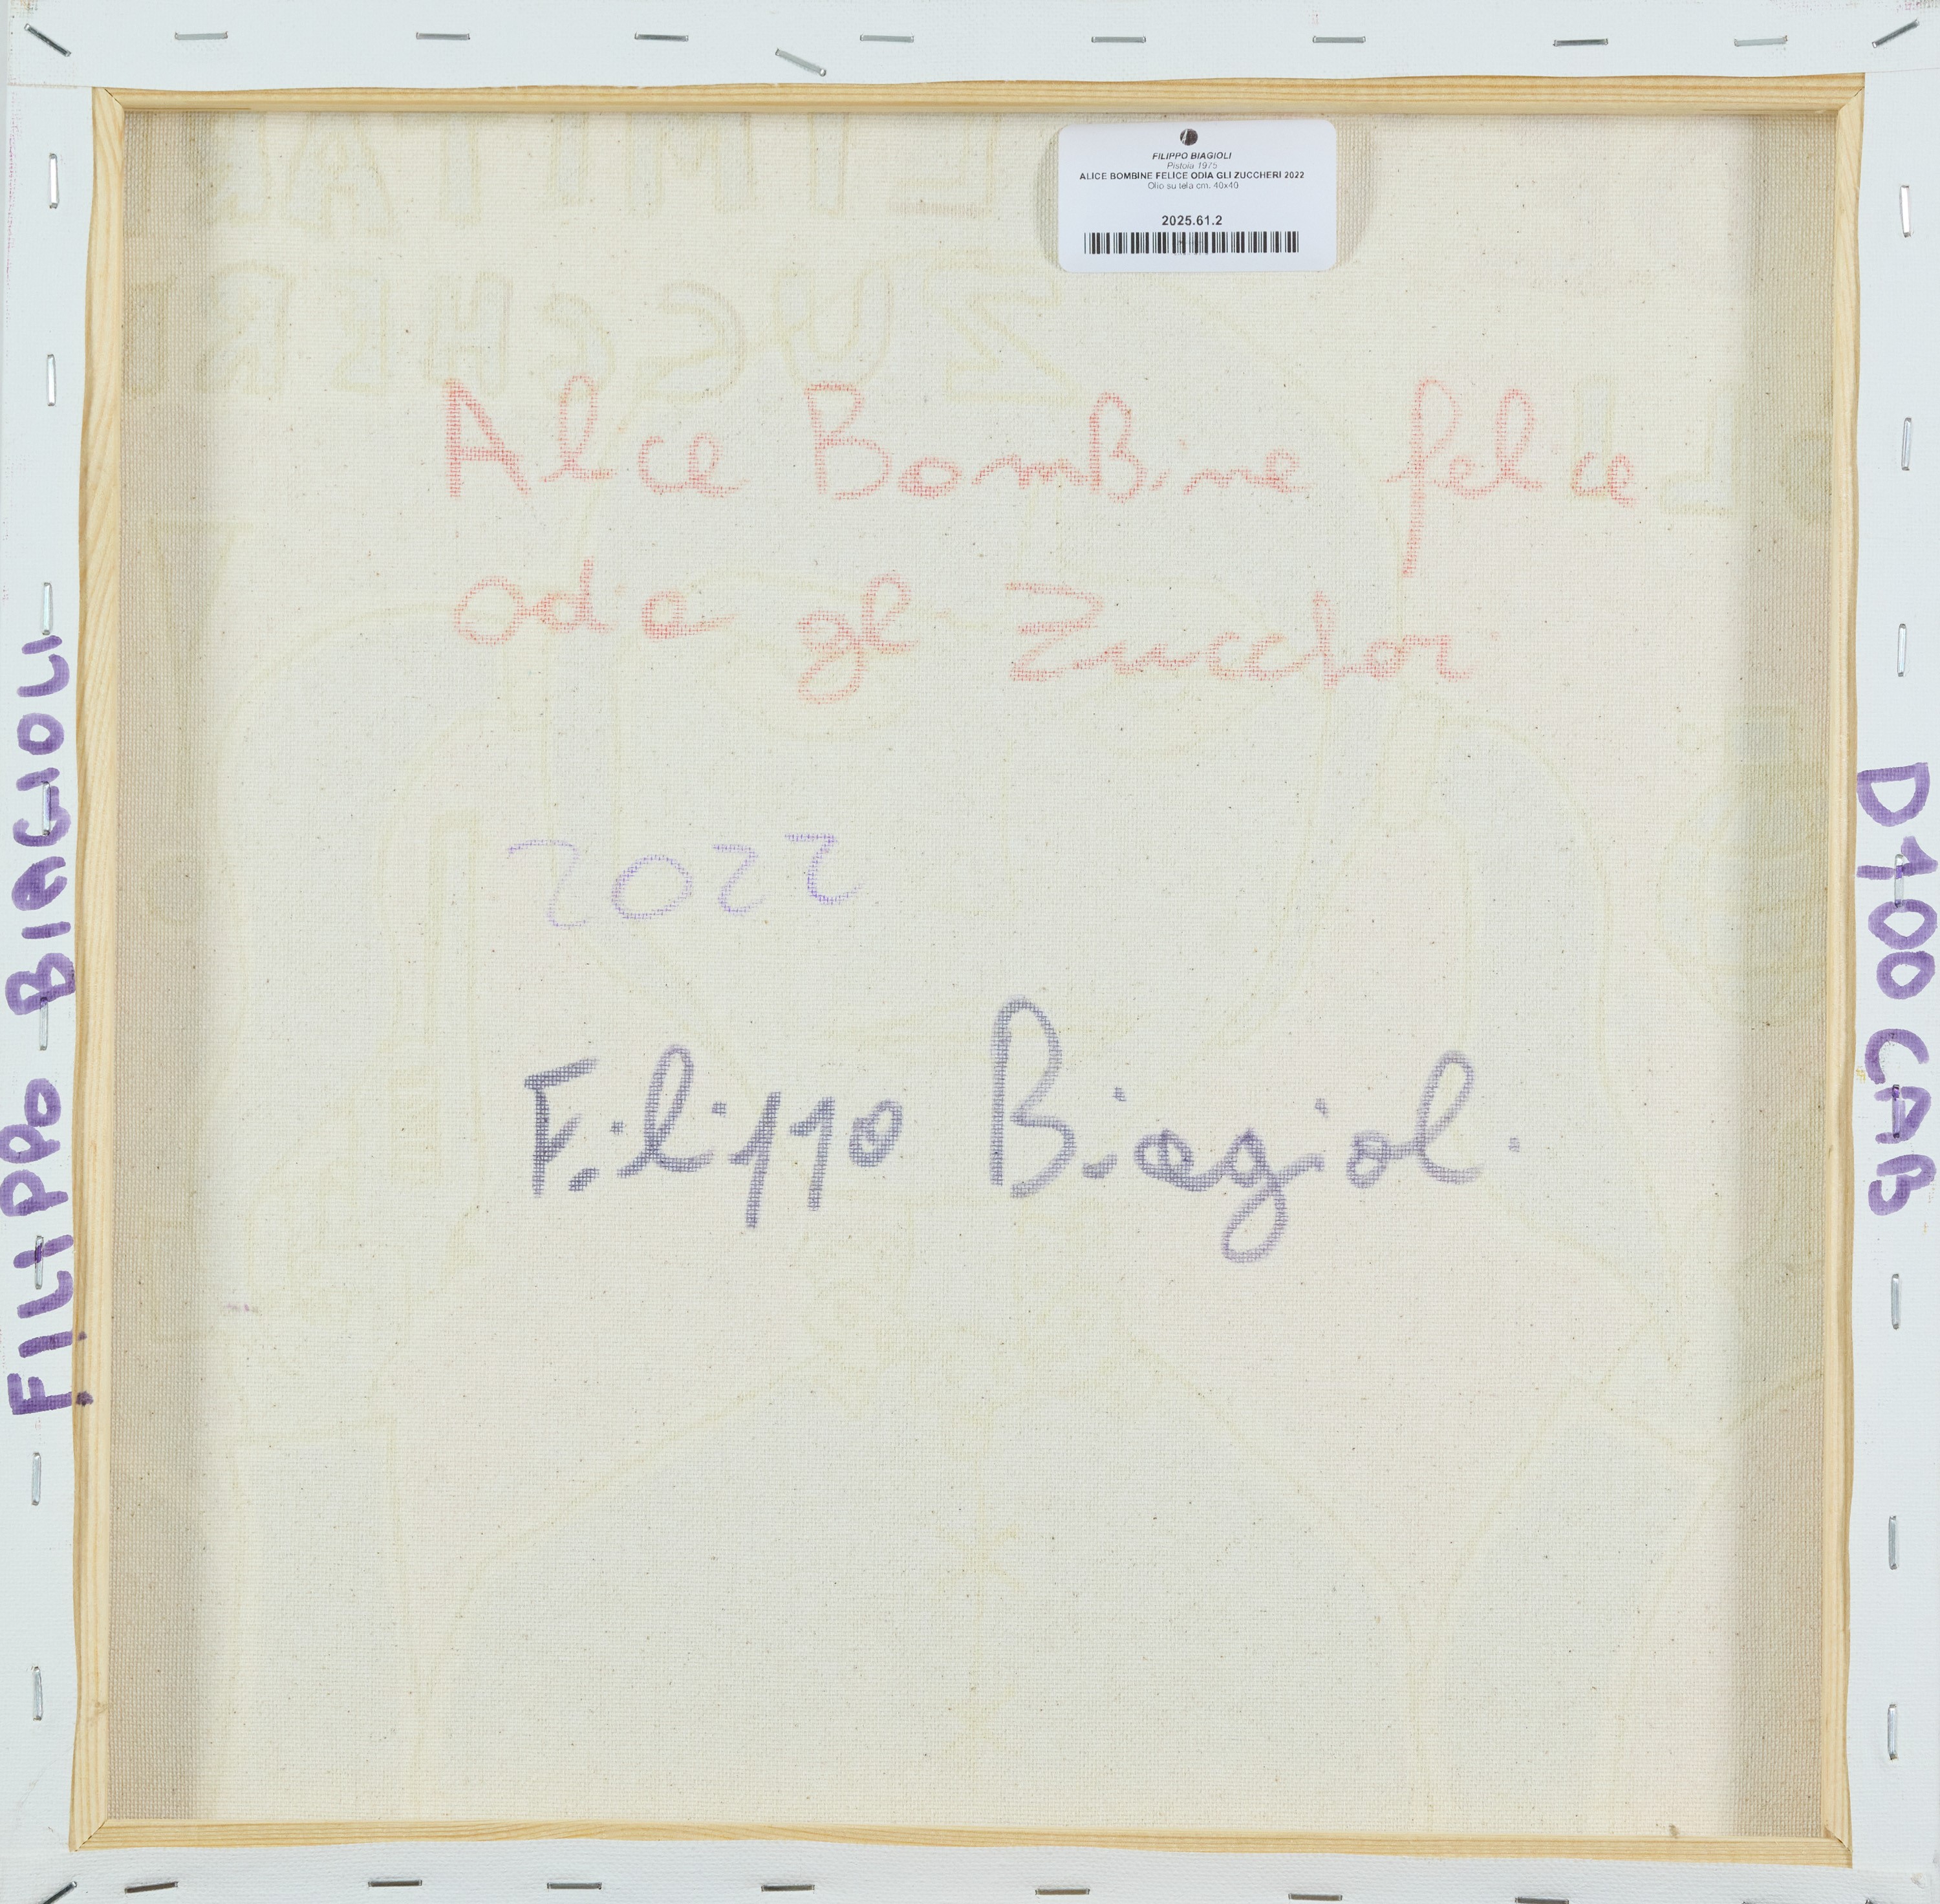 FILIPPO BIAGIOLI
Pistoia 1975
ALICE BOMBINE FELICE ODIA GLI ZUCCHERI 2022
Olio su tela cm. 40x40
2025.61.2
Alice Bombine felice
odia gli Zuccheri
2022
Filippo Biagioli
FILIPPO BIAGIOLI
D100 CAB
ZUCCHERI